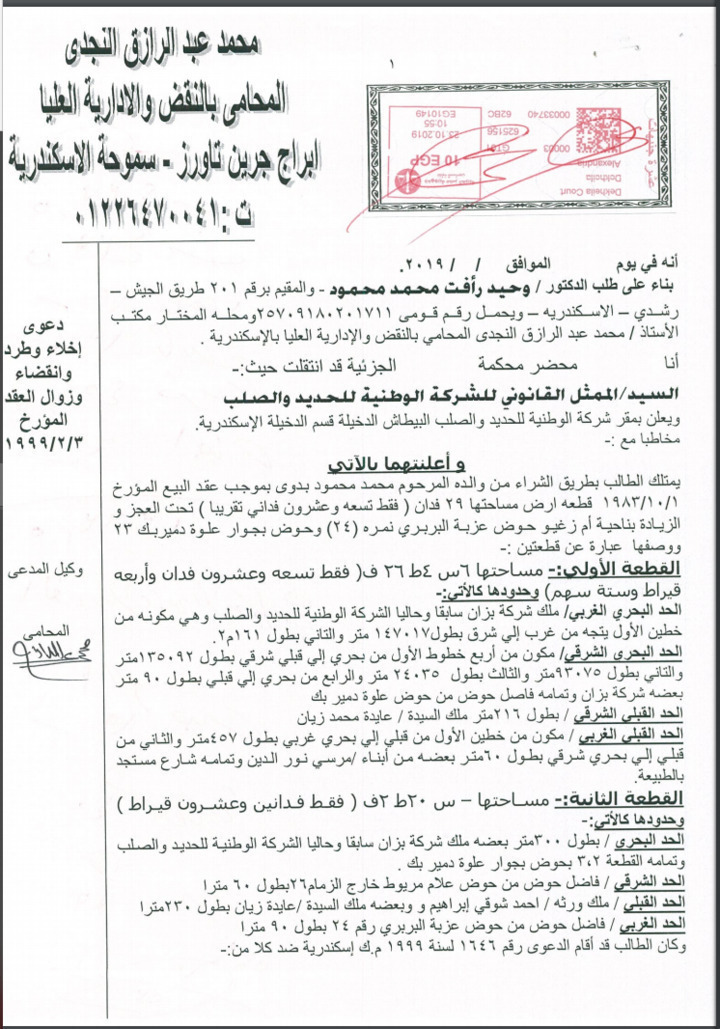 محمد عبد الرازق النجدى
المحامى بالنقض والادارية العليا
ابراج جرين تاورز - سموحة الاسكندرية
ت : ٠١٢٢٦٤٧٠٠٤١
١
Dekheila Court
Dekheila
Alexandria
00003
00033740
GT01
625156
62BC
10 EGP
23.10.2019
10:55
EG10149
أنه في يوم الموافق / / ٢٠١٩.
بناء على طلب الدكتور / وحيد رأفت محمد محمود - والمقيم برقم ٢٠١ طريق الجيش –
رشدي – الاسكندريه – ويحمل رقم قومى ٢٥٧٠٩١٨٠٢٠١٧١١ ومحله المختار مكتب
الأستاذ / محمد عبد الرازق النجدى المحامي بالنقض والإدارية العليا بالإسكندرية .
أنا محضر محكمة الجزئية قد انتقلت حيث:-
السيد/الممثل القانوني للشركة الوطنية للحديد والصلب
ويعلن بمقر شركة الوطنية للحديد والصلب البيطاش الدخيلة قسم الدخيلة الإسكندرية.
مخاطبا مع :-
و أعلنتهما بالآتي
يمتلك الطالب بطريق الشراء من والده المرحوم محمد محمود بدوى بموجب عقد البيع المؤرخ
١٩٨٣/١٠/١ قطعه ارض مساحتها ٢٩ فدان ( فقط تسعه وعشرون فداني تقريبا ) تحت العجز و
الزيادة بناحية أم زغيو حوض عزبة البربري نمره (٢٤) وحوض بجوار علوة دميربك ٢٣
ووصفها عبارة عن قطعتين :-
القطعة الأولي:- مساحتها ٦س ٤ط ٢٦ ف( فقط تسعه وعشرون فدان وأربعه
قيراط وستة سهم) وحدودها كالأتي:-
الحد البحري الغربي/ ملك شركة بزان سابقا وحاليا الشركة الوطنية للحديد والصلب وهي مكونه من
خطين الأول يتجه من غرب إلي شرق بطول١٤٧٠١٧ متر والتاني بطول ١٦١م٢.
الحد البحري الشرقي/ مكون من أربع خطوط الأول من بحري إلي قبلي شرقي بطول ١٣٥٠٩٢متر
والتاني بطول ٩٣٠٧٥متر والثالث بطول ٢٤٠٣٥ متر والرابع من بحري إلي قبلي بطول ٩٠ متر
بعضه شركة بزان وتمامه فاصل حوض من حوض علوة دمير بك
الحد القبلي الشرقي / بطول ٢١٦متر ملك السيدة / عايدة محمد زيان
الحد القبلي الغربي / مكون من خطين الأول من قبلي إلي بحري غربي بطول ٤٥٧متر والثاني من
قبلي إلي بحري شرقي بطول ٦٠متر بعضه من أبناء /مرسي نور الدين وتمامه شارع مستجد
بالطبيعة.
القطعة الثانية:- مساحتها – س ٢٠ط ٢ف ( فقط فدانين وعشرون قيراط )
وحدودها كالأتي:-
الحد البحري / بطول ٣٠٠متر بعضه ملك شركة بزان سابقا وحاليا الشركة الوطنية للحديد والصلب
وتمامه القطعة ٣٤٢ بحوض بجوار علوة دمير بك .
الحد الشرقي / فاضل حوض من حوض علام مربوط خارج الزمام٢٦بطول ٦٠ مترا
الحد القبلي / ملك ورثه / احمد شوقي إبراهيم و وبعضه ملك السيدة /عايدة زيان بطول ٢٣٠مترا
الحد الغربي / فاضل حوض من حوض عزبة البربري رقم ٢٤ بطول ٩٠ مترا
وكان الطالب قد أقام الدعوى رقم ١٦٤٦ لسنة ١٩٩٩ م.ك إسكندرية ضد كلا من:-
دعوى
إخلاء وطرد
وانقضاء
وزوال العقد
المؤرخ
١٩٩٩/٢/٣
وكيل المدعى
المحامي